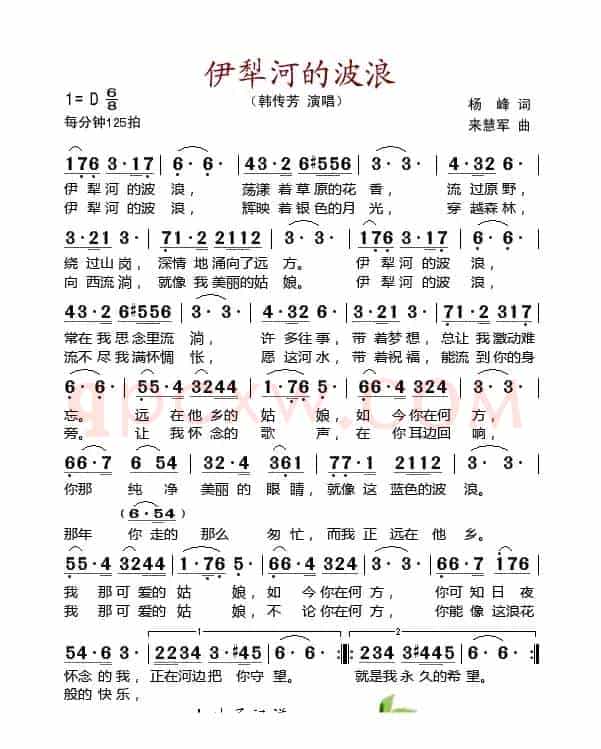 伊犁河的波浪
1= D 6/8
（韩传芳 演唱）
杨 峰 词
每分钟125拍
来慧军 曲
176 3·17 | 6· 6· | 43·2 6#556 | 3· 3· | 176 3·17 | 6· 6· |
伊犁河的波 浪， 荡漾着草原的花 香， 流 过原野，
伊犁河的波 浪， 辉映着银色的月 光， 穿 越森林，
3·21 3· | 71·2 2112 | 3· 3· | 176 3·17 | 6· 6· |
绕过山岗， 深情 地涌向了远 方。 伊 犁河的波 浪，
向西流淌， 就像 我美丽的姑 娘。 伊 犁河的波 浪，
43·2 6#556 | 3· 3· | 44·2 3· | 3·21 3· | 71·2 317 |
常在我思念里流 淌， 许 多往事， 带 着梦想， 总让我激动难
流不尽我满怀惆 怅， 愿 这河水， 带 着祝福， 能流到你的身
6· 6· | 55·4 3244 | 1·76 5· | 66·4 3244 | 3· 3· |
忘。 远 在他乡的 姑 娘， 如 今你在何 方，
旁。 让 我怀念的 歌 声， 在 你耳边回 响，
66·7 6 54 | 32·4 361 | 77·1 2112 | 3· 3· |
你那 纯 净 美丽的 眼 睛， 就像这 蓝色的波 浪。
（6·54）
那年 你走的 那么 匆忙， 而我正 远在他 乡。
55·4 3244 | 1·76 5· | 66·4 3244 | 3· 3· | 66·7 176 |
我 那可爱的 姑 娘， 如 今你在何 方， 你可知 日 夜
我 那可爱的 姑 娘， 不 论你在何 方， 你能像 这浪花
54·6 3· | 1 2234 3·#45 | 6· 6· :‖: 2 2234 3·#445 | 6· 6· :‖
怀念的我， 正在河边把 你守 望。 就是我永 久的希 望。
般的快乐，
qpcxw.com